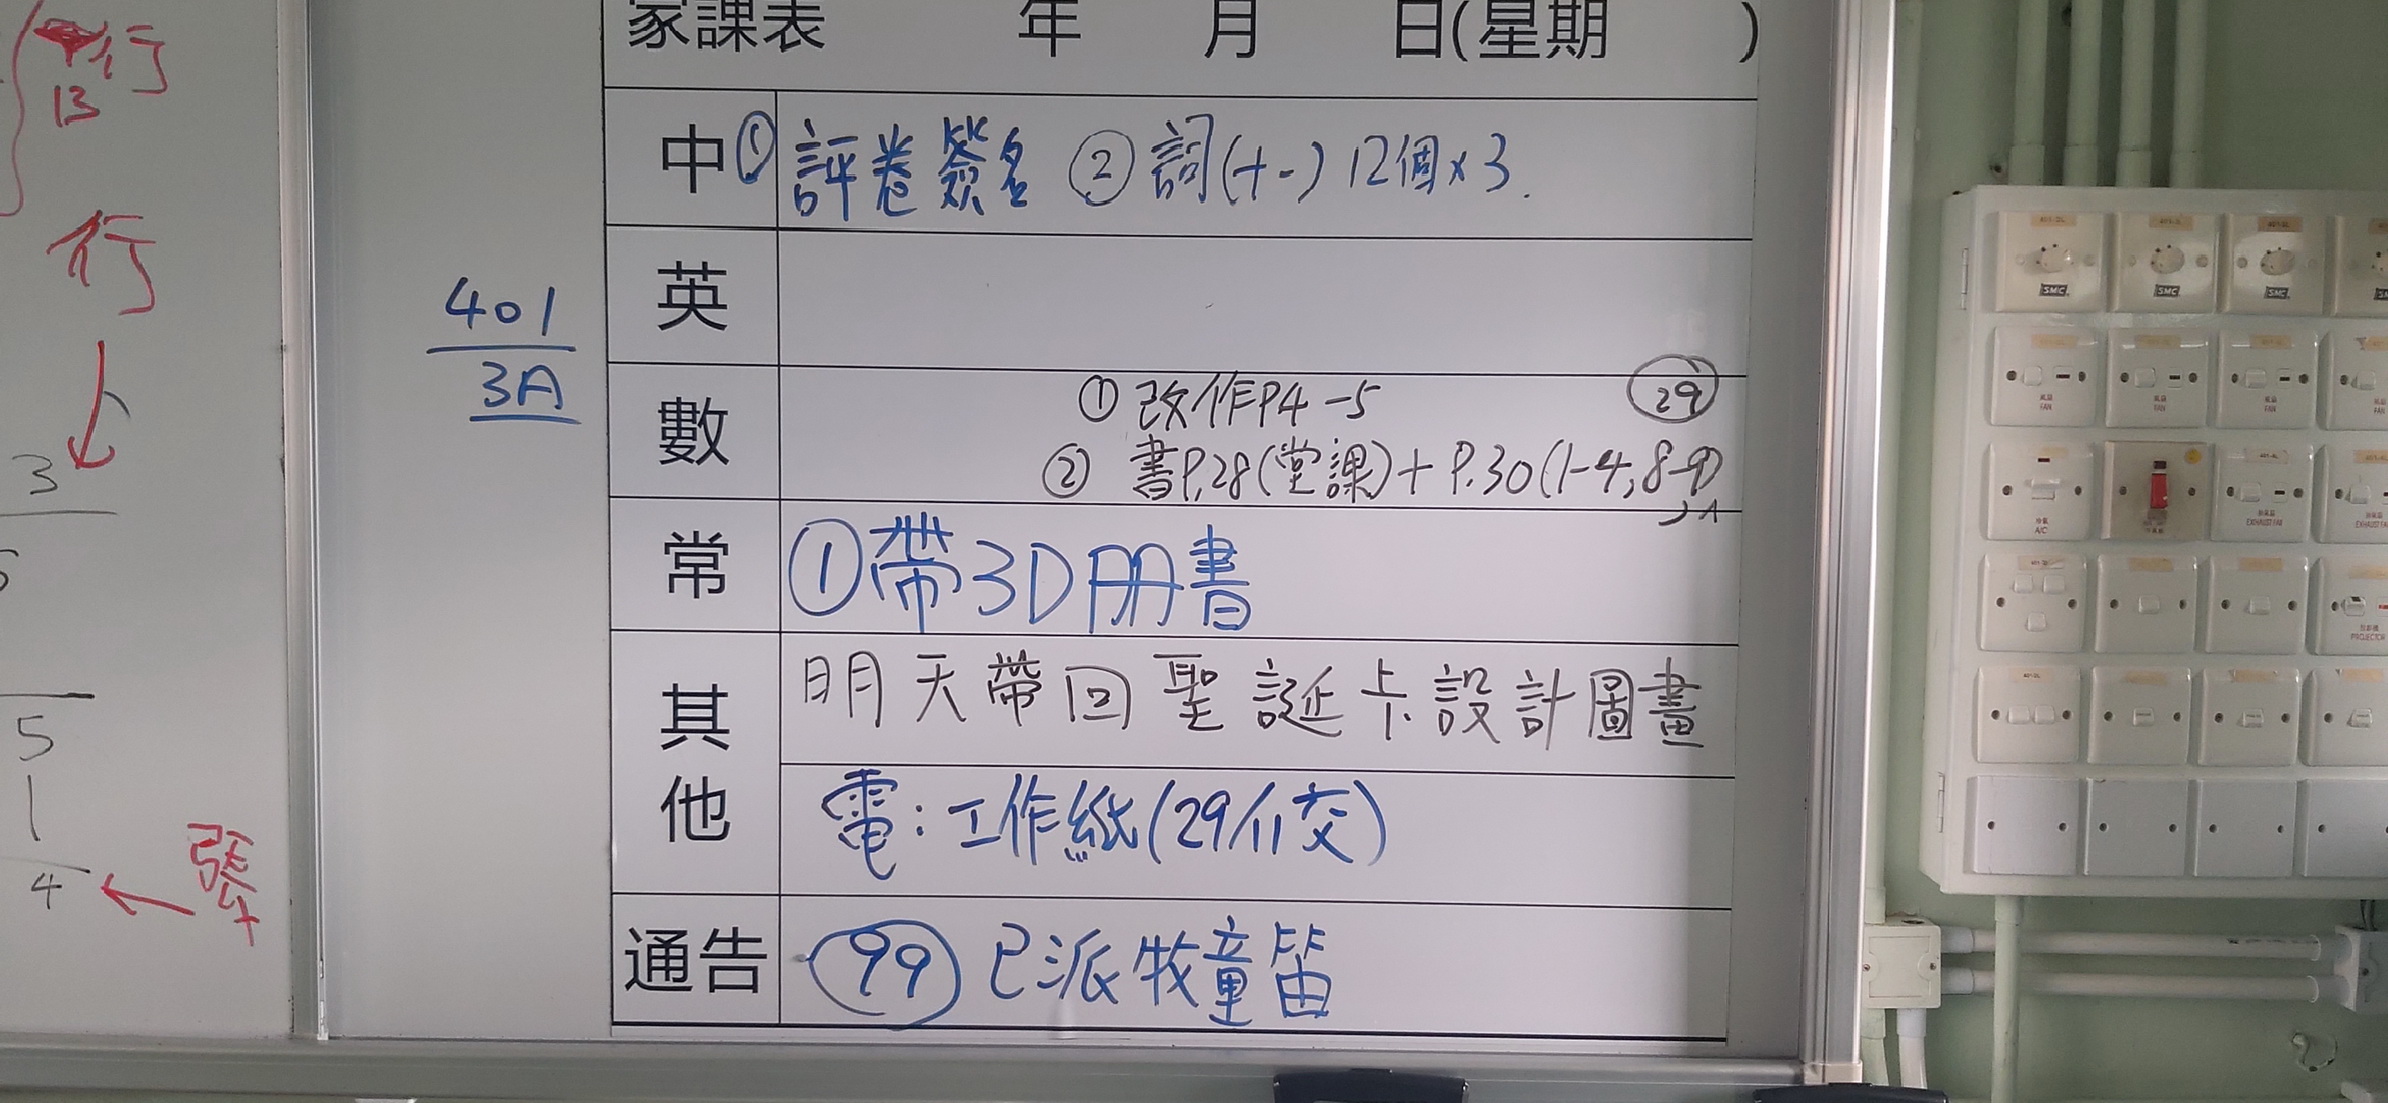 行
13
行
3
5
1
4
401
3A
家課表 年 月 日(星期 )
中 ① 評卷簽名 ② 詞(十一) 12個×3.
英
數 ① 改作P4-5 29
② 書P.28(堂課)+P.30(1-4,8-9)
常 ①帶3D冊書
其他 明天帶回聖誕卡設計圖畫
電:工作紙(29/11交)
通告 99 已派牧童笛
SMC SMC SMC
FAN FAN FAN FAN
A/C EXHAUST FAN EXHAUST FAN
PROJECTOR